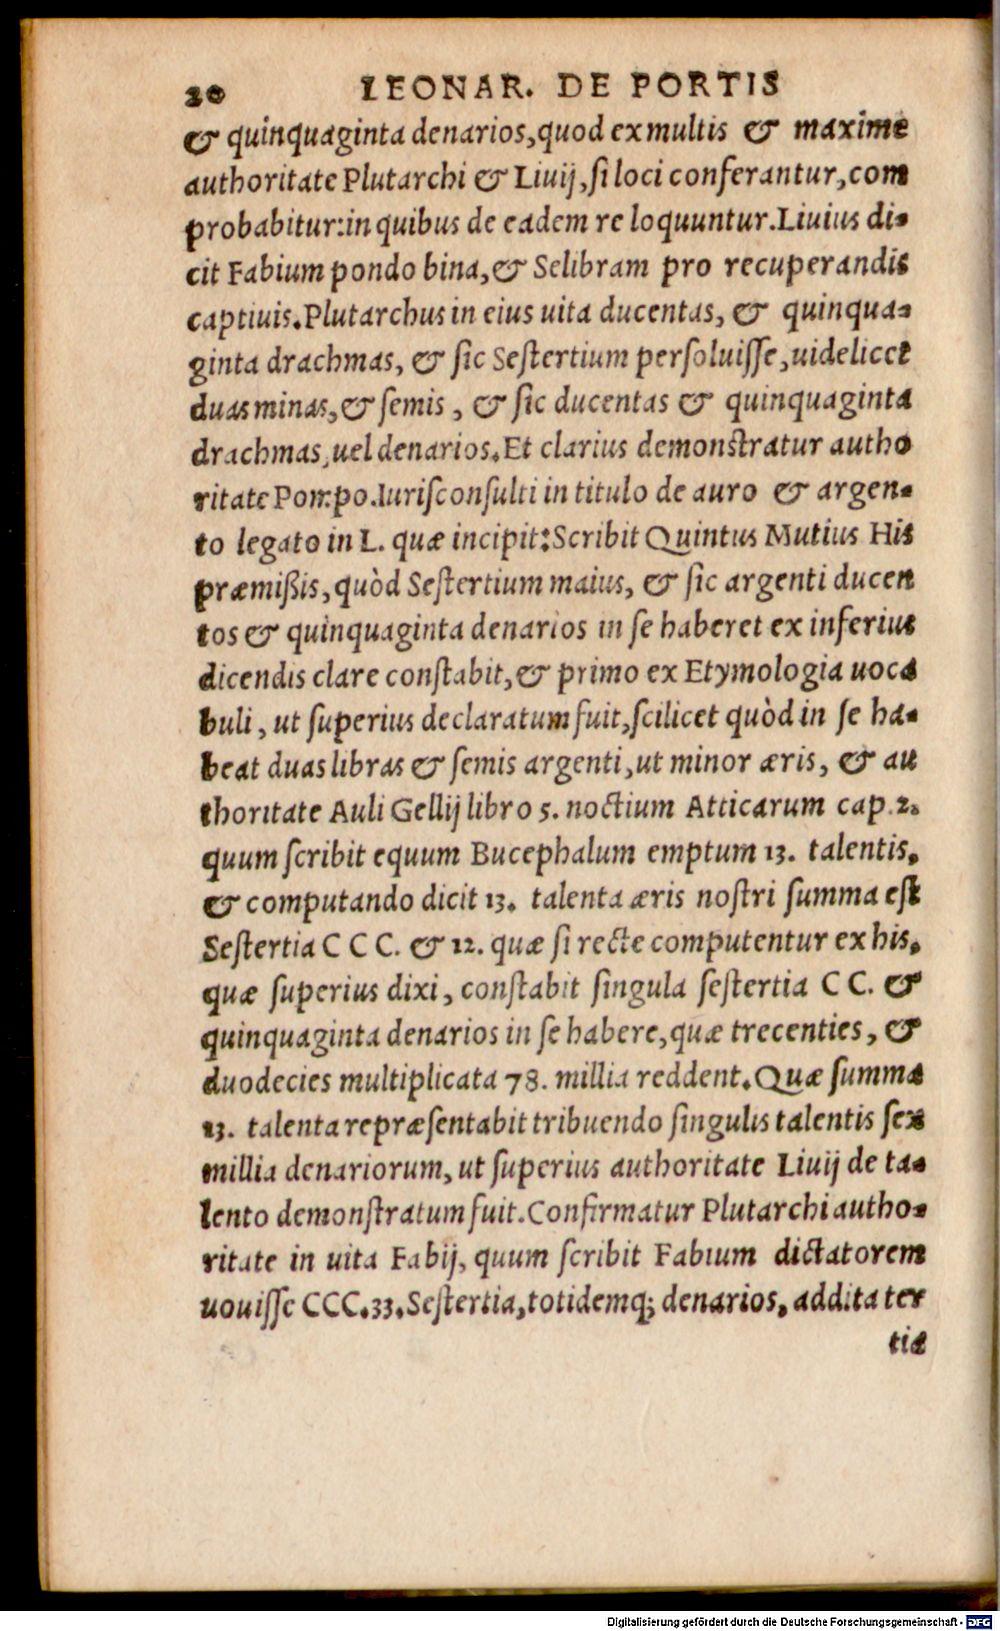 20 LEONAR. DE PORTIS
& quinquaginta denarios, quod ex multis & maxime
authoritate Plutarchi & Liuij, ſi loci conferantur, com
probabitur: in quibus de eadem re loquuntur. Liuius di-
cit Fabium pondo bina, & Selibram pro recuperandis
captiuis. Plutarchus in eius uita ducentas, & quinqua-
ginta drachmas, & ſic Seſtertium perſoluiſſe, uidelicet
duas minas, & ſemis, & ſic ducentas & quinquaginta
drachmas, uel denarios. Et clarius demonſtratur autho
ritate Pompo. Iuriſconſulti in titulo de auro & argen-
to legato in L. quæ incipit: Scribit Quintus Mutius His
præmiſsis, quòd Seſtertium maius, & ſic argenti ducen
tos & quinquaginta denarios in ſe haberet ex inferius
dicendis clare conſtabit, & primo ex Etymologia uoca
buli, ut ſuperius declaratum fuit, ſcilicet quòd in ſe ha-
beat duas libras & ſemis argenti, ut minor æris, & au
thoritate Auli Gellij libro 5. noctium Atticarum cap. 2.
quum ſcribit equum Bucephalum emptum 13. talentis,
& computando dicit 13. talenta æris noſtri ſumma eſt
Seſtertia C C C. & 12. quæ ſi recte computentur ex his,
quæ ſuperius dixi, conſtabit ſingula ſeſtertia C C. &
quinquaginta denarios in ſe habere, quæ trecenties, &
duodecies multiplicata 78. millia reddent. Quæ ſumma
13. talenta repræſentabit tribuendo ſingulis talentis ſex
millia denariorum, ut ſuperius authoritate Liuij de ta-
lento demonſtratum fuit. Confirmatur Plutarchi autho-
ritate in uita Fabij, quum ſcribit Fabium dictatorem
uouiſſe CCC.33. Seſtertia, totidemq; denarios, addita ter
tia
Digitalisierung gefördert durch die Deutsche Forschungsgemeinschaft - DFG